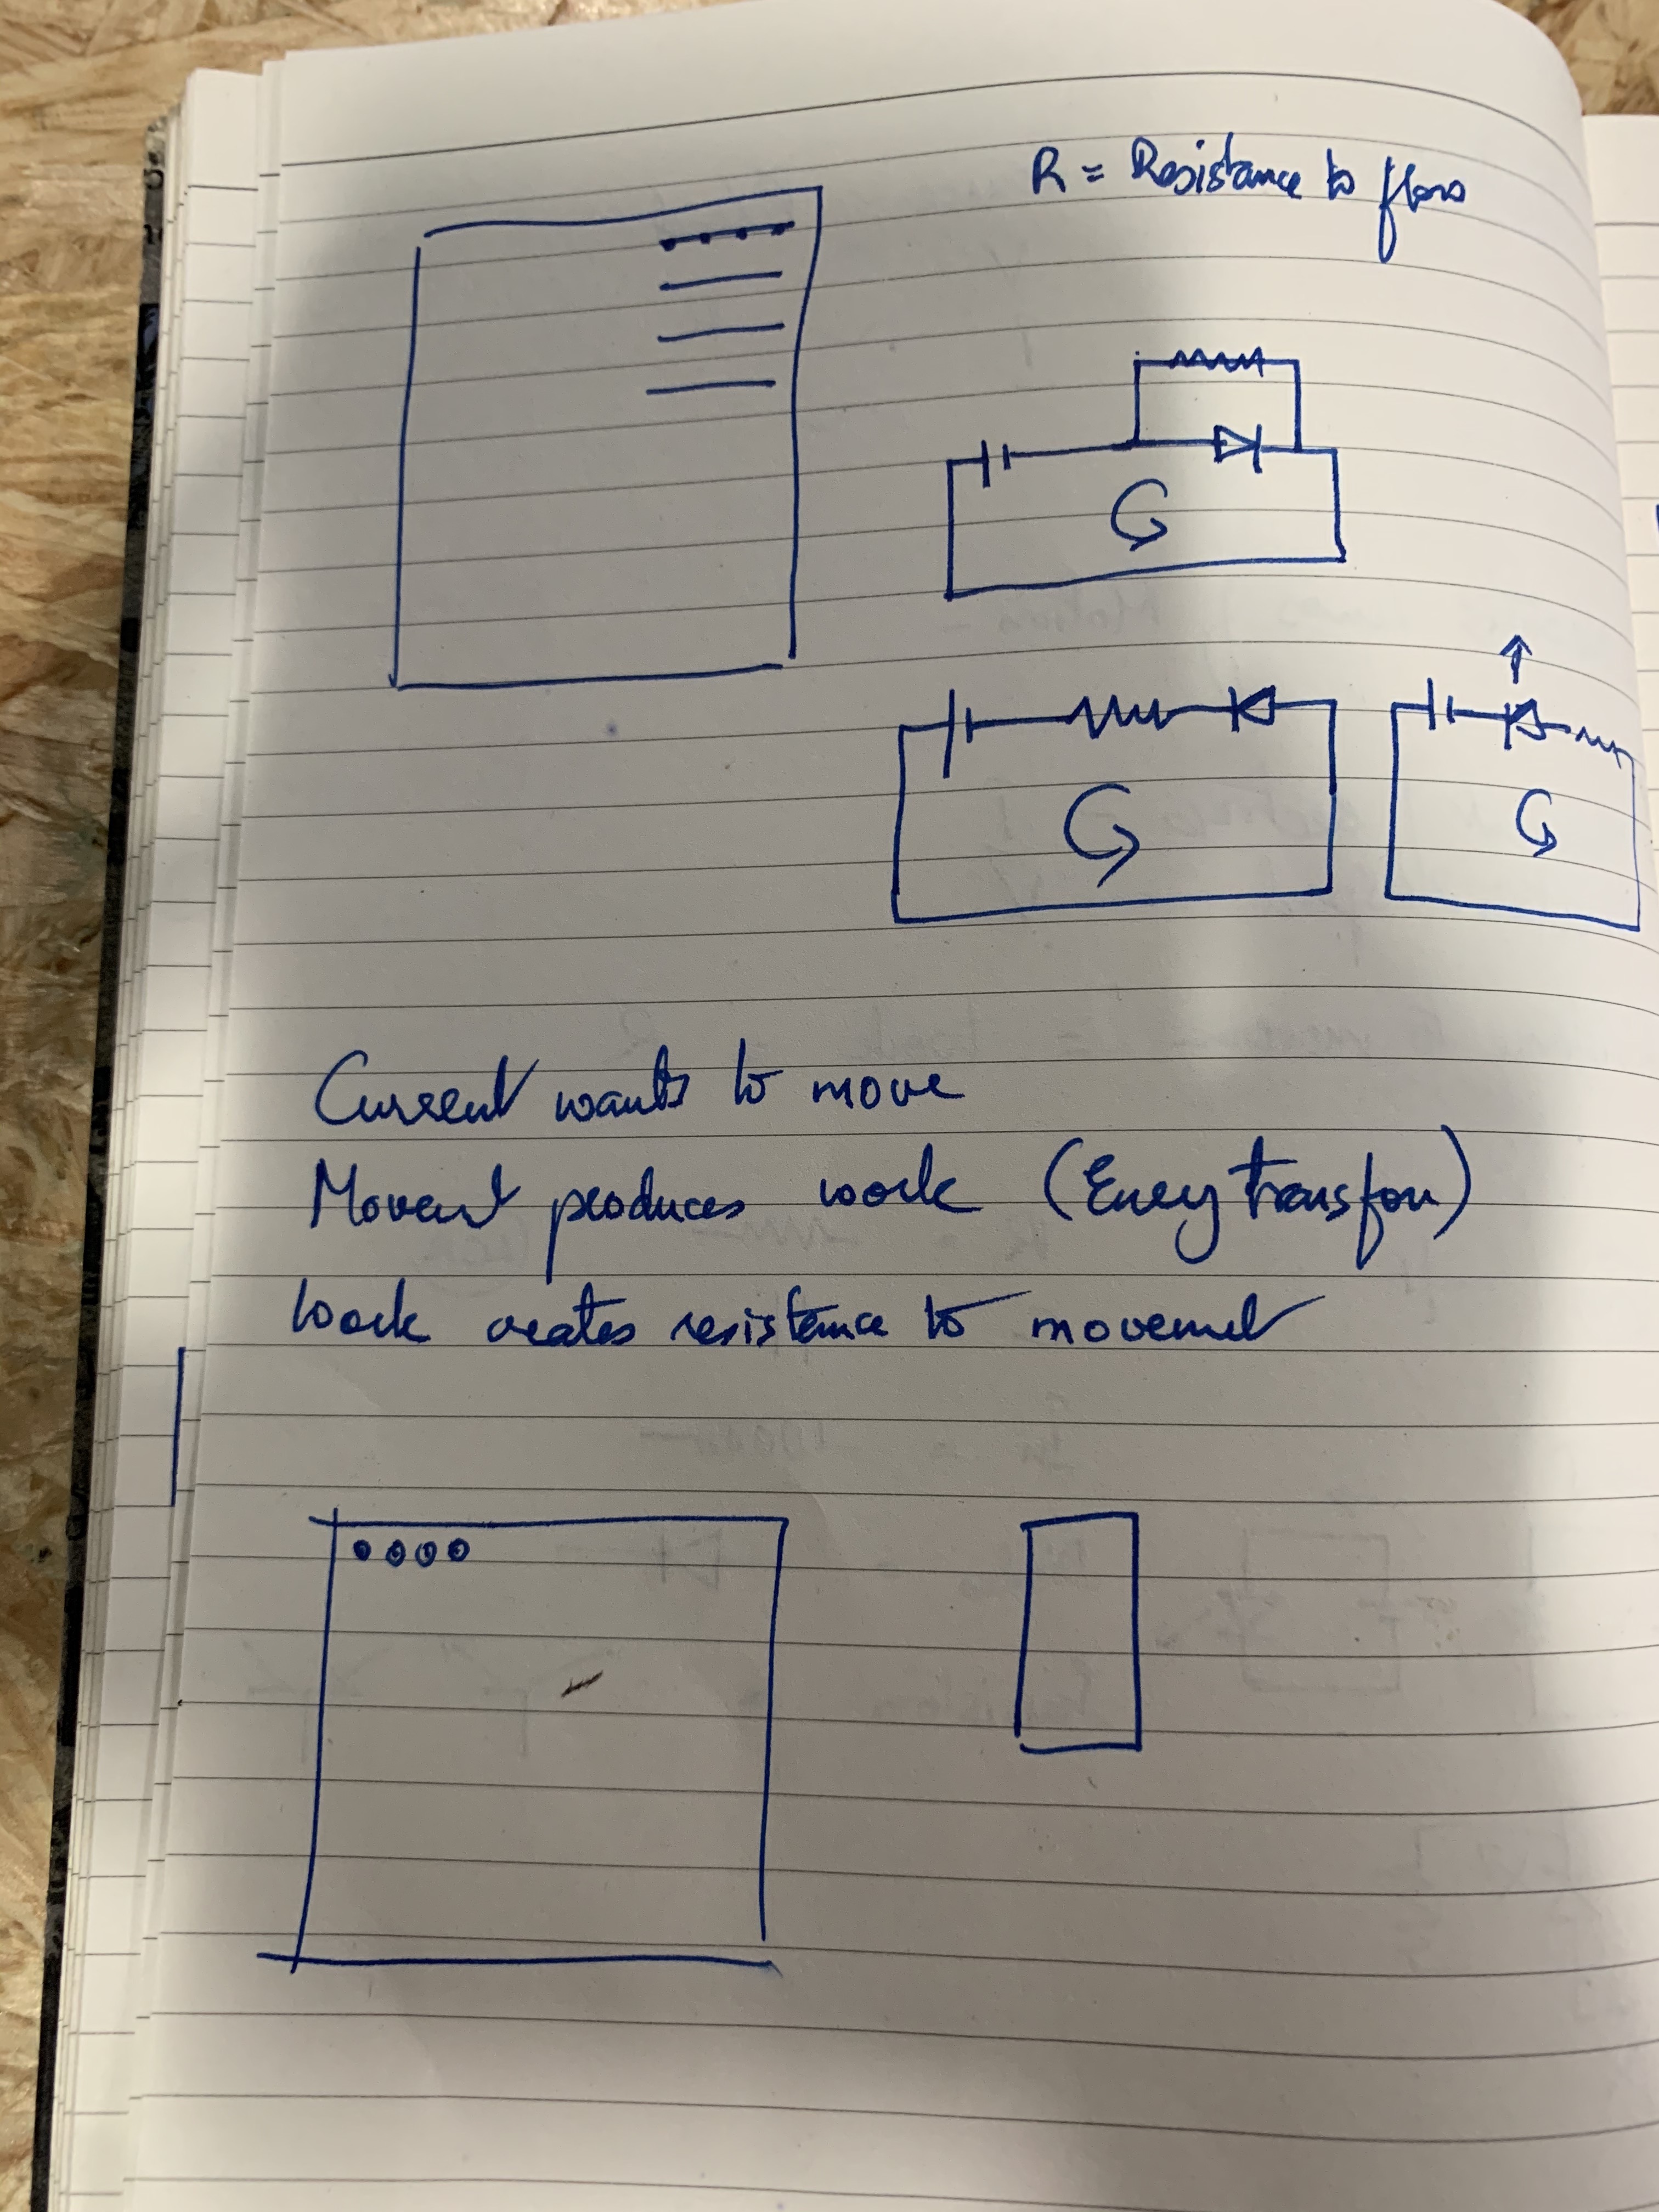 R = Resistance to flow
Current wants to move
Movent produces work (Energy transfon)
Work creates resistance to movemet